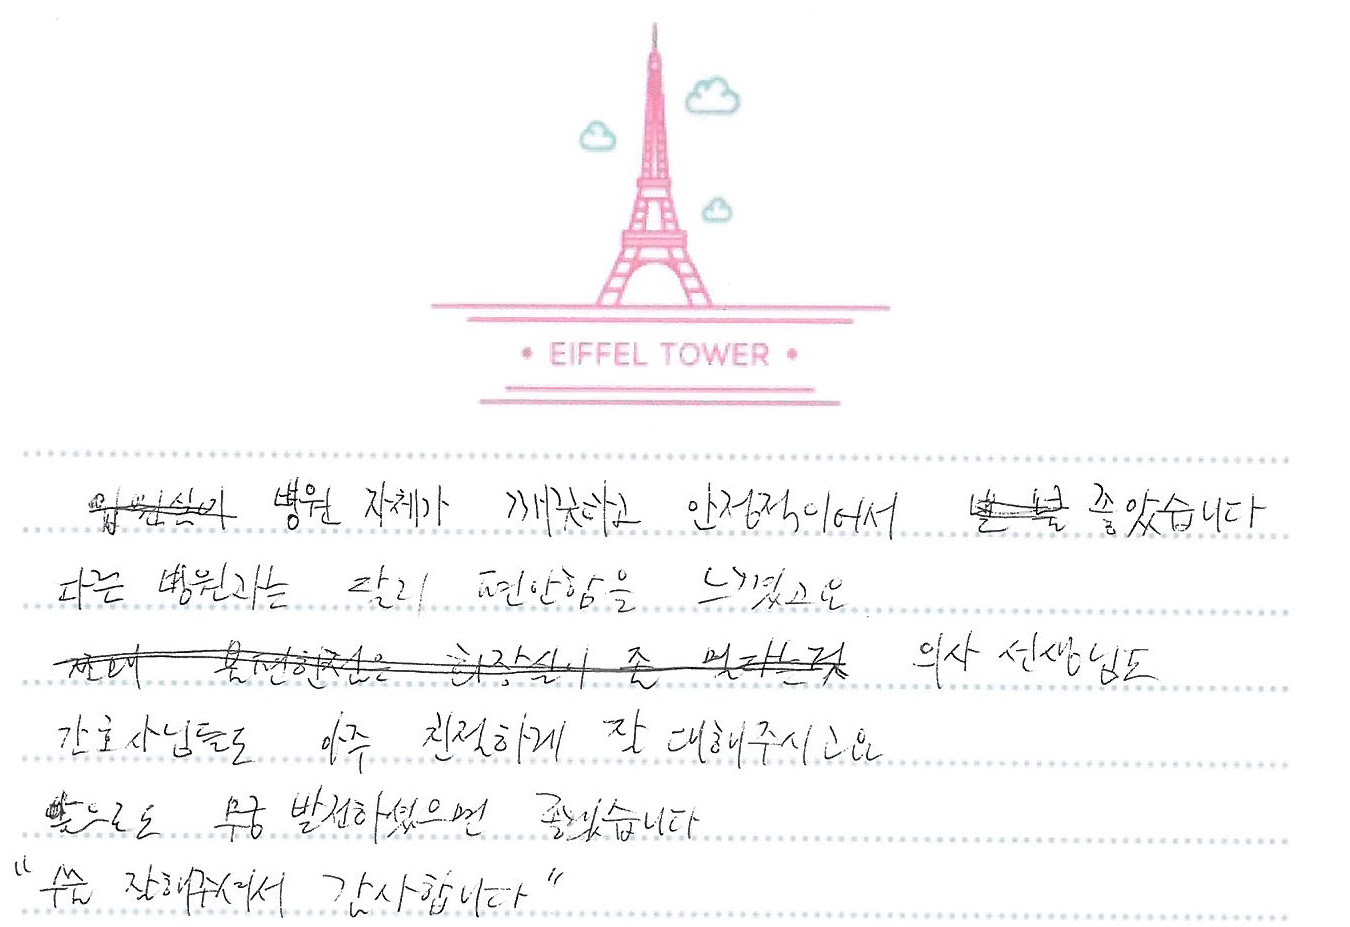 • EIFFEL TOWER •
병원 자체가 깨끗하고 안정적이어서 좋았습니다
다른 병원과는 달리 편안함을 느꼈고요
의사 선생님도
간호사님들도 아주 친절하게 잘 대해주시고요
앞으로도 무궁 발전하셨으면 좋겠습니다
"수술 잘해주셔서 감사합니다"